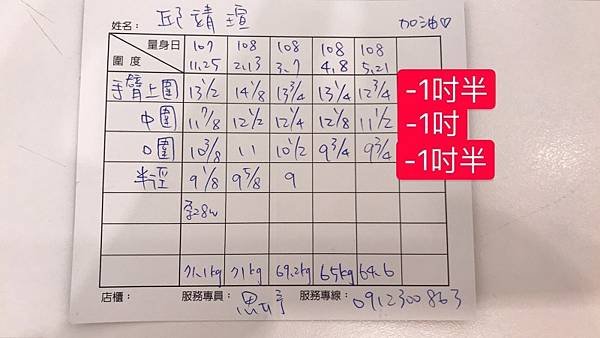 姓名： 邱靖瑄 加油♡
量身日 107 108 108 108 108
圍度 11.25 2.13 3.7 4.8 5.21
手臂上圍 13 1/2 14 1/8 13 3/4 13 1/4 12 3/4 -1吋半
中圍 11 7/8 12 1/2 12 1/4 12 1/8 11 1/2 -1吋
口圍 10 3/8 11 10 1/2 9 3/4 9 3/4 -1吋半
半徑 9 1/8 9 5/8 9
孕28w
71.1kg 71kg 69.2kg 65kg 64.6
店櫃： 服務專員： 服務專線： 0912300863